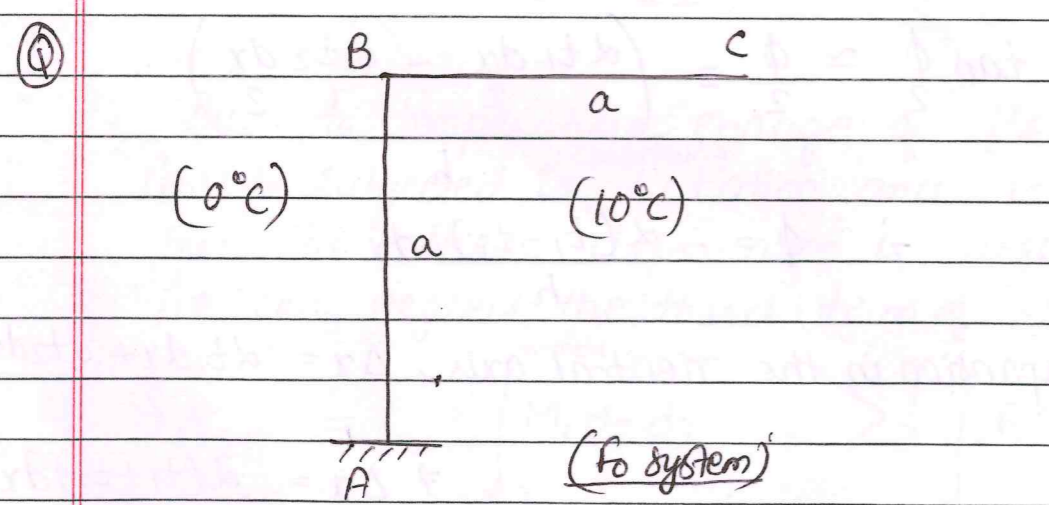 Q
B C
a
(0°C) (10°C)
a
A (to system)